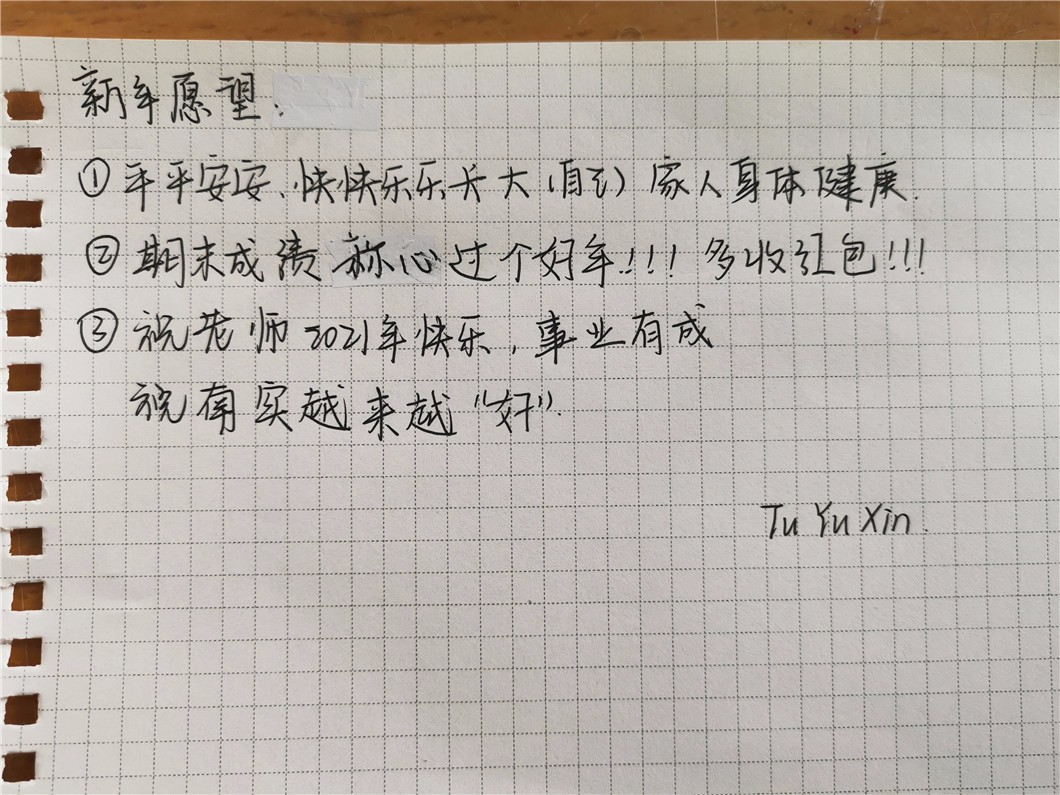 新年愿望.
①平平安安、快快乐乐长大(自己)家人身体健康.
②期末成绩称心过个好年!!!多收红包!!!
③祝老师2021年快乐,事业有成
祝南实越来越“好”.
Tu Yu Xin.